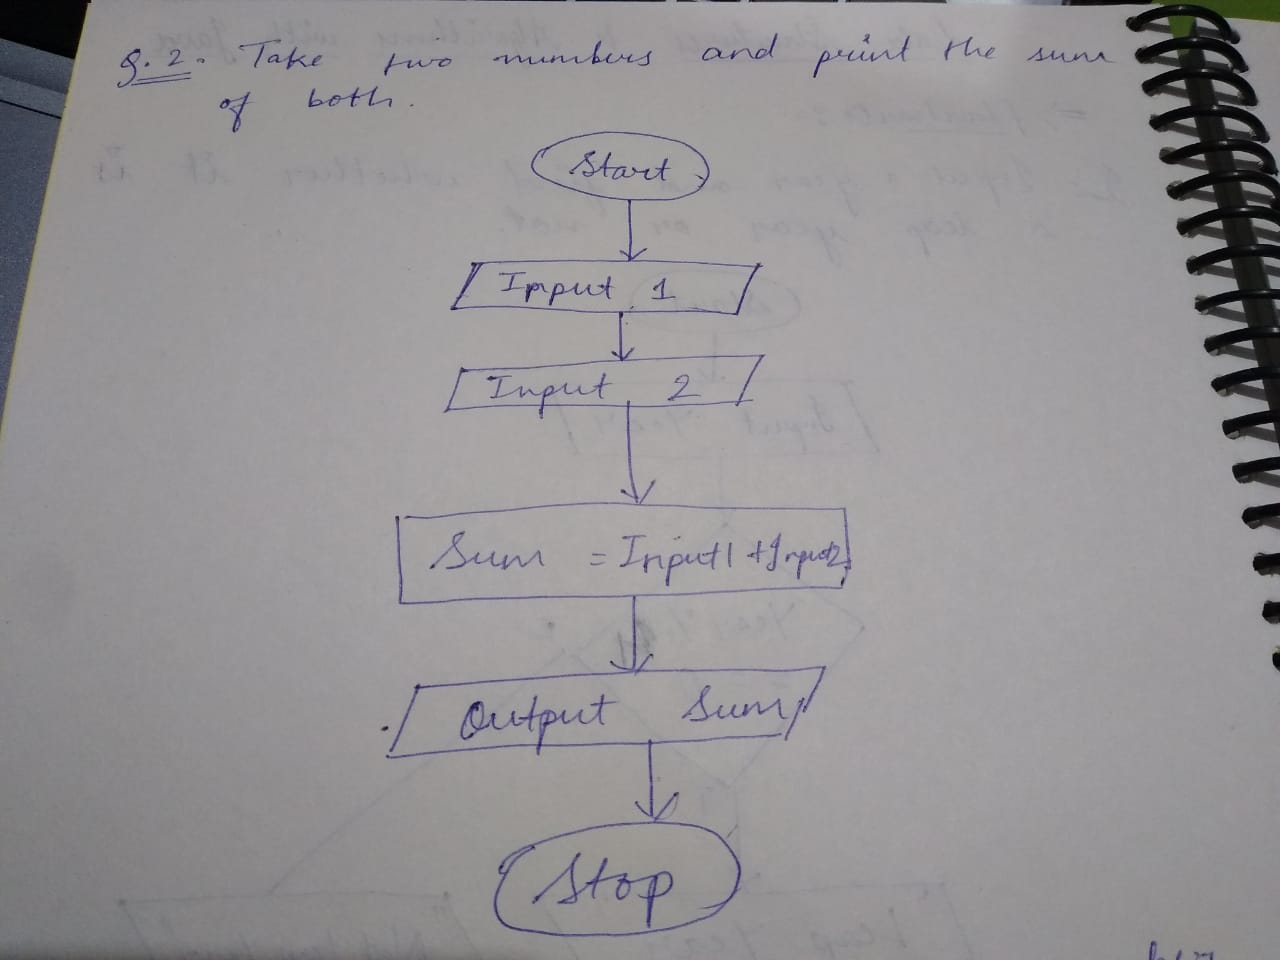 Q.2. Take two numbers and print the sum
of both.
Start
Input 1
Input 2
Sum = Input1 + Input2
Output Sum
Stop